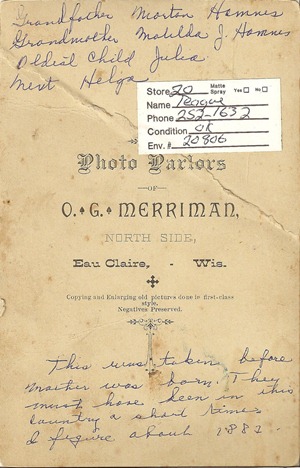 Grandfather Morton Hamnes
Grandmother Matilda J. Hamnes
Oldest Child Julia
Next Helga
Store 20 Matte Spray Yes No
Name Teague
Phone 252-1632
Condition ok
Env. # 20806
Photo Parlors
OF
O. G. MERRIMAN,
NORTH SIDE,
Eau Claire, - Wis.
Copying and Enlarging old pictures done in first-class
style.
Negatives Preserved.
This was taken before
Mother was born. They
must have been in this
country a short time
I figure about 1882.